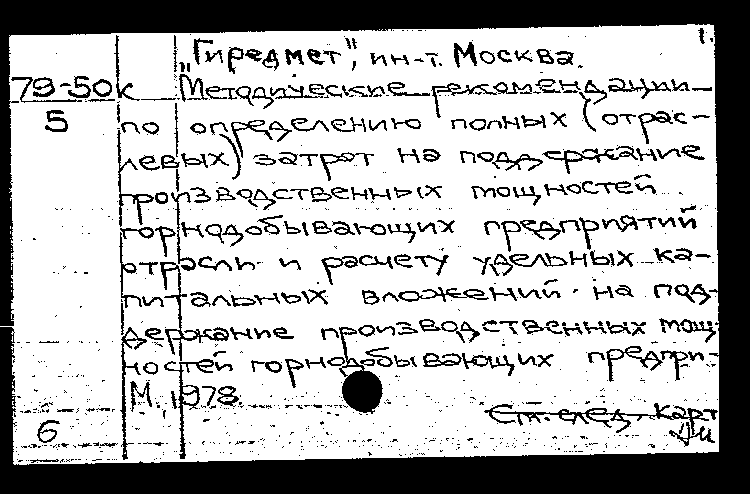 1.
„Гиредмет", ин-т. Москва.
79-50к Методические рекомендации
5 по определению полных (отрас-
левых) затрот на поддержание
производственных мощностей
горнодобывающих предприятий
отрасли и расчету удельных ка-
питальных вложений на под-
держание производственных мощ-
ностей горнодобывающих предпри-
М., 1978.
См. след. карт
6